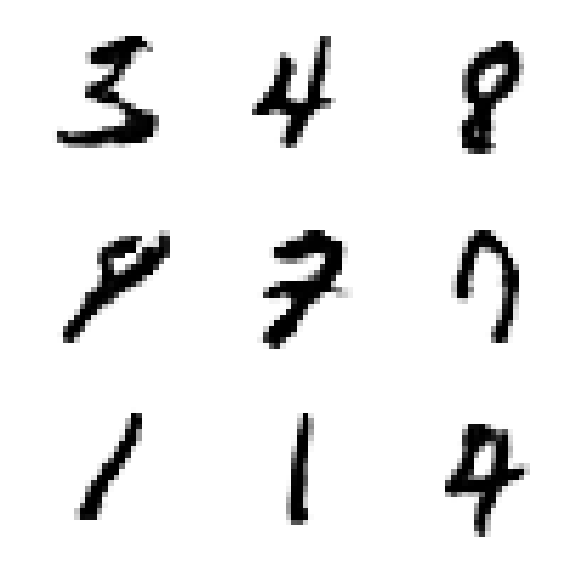 3 4 8
9 7 7
1 1 4